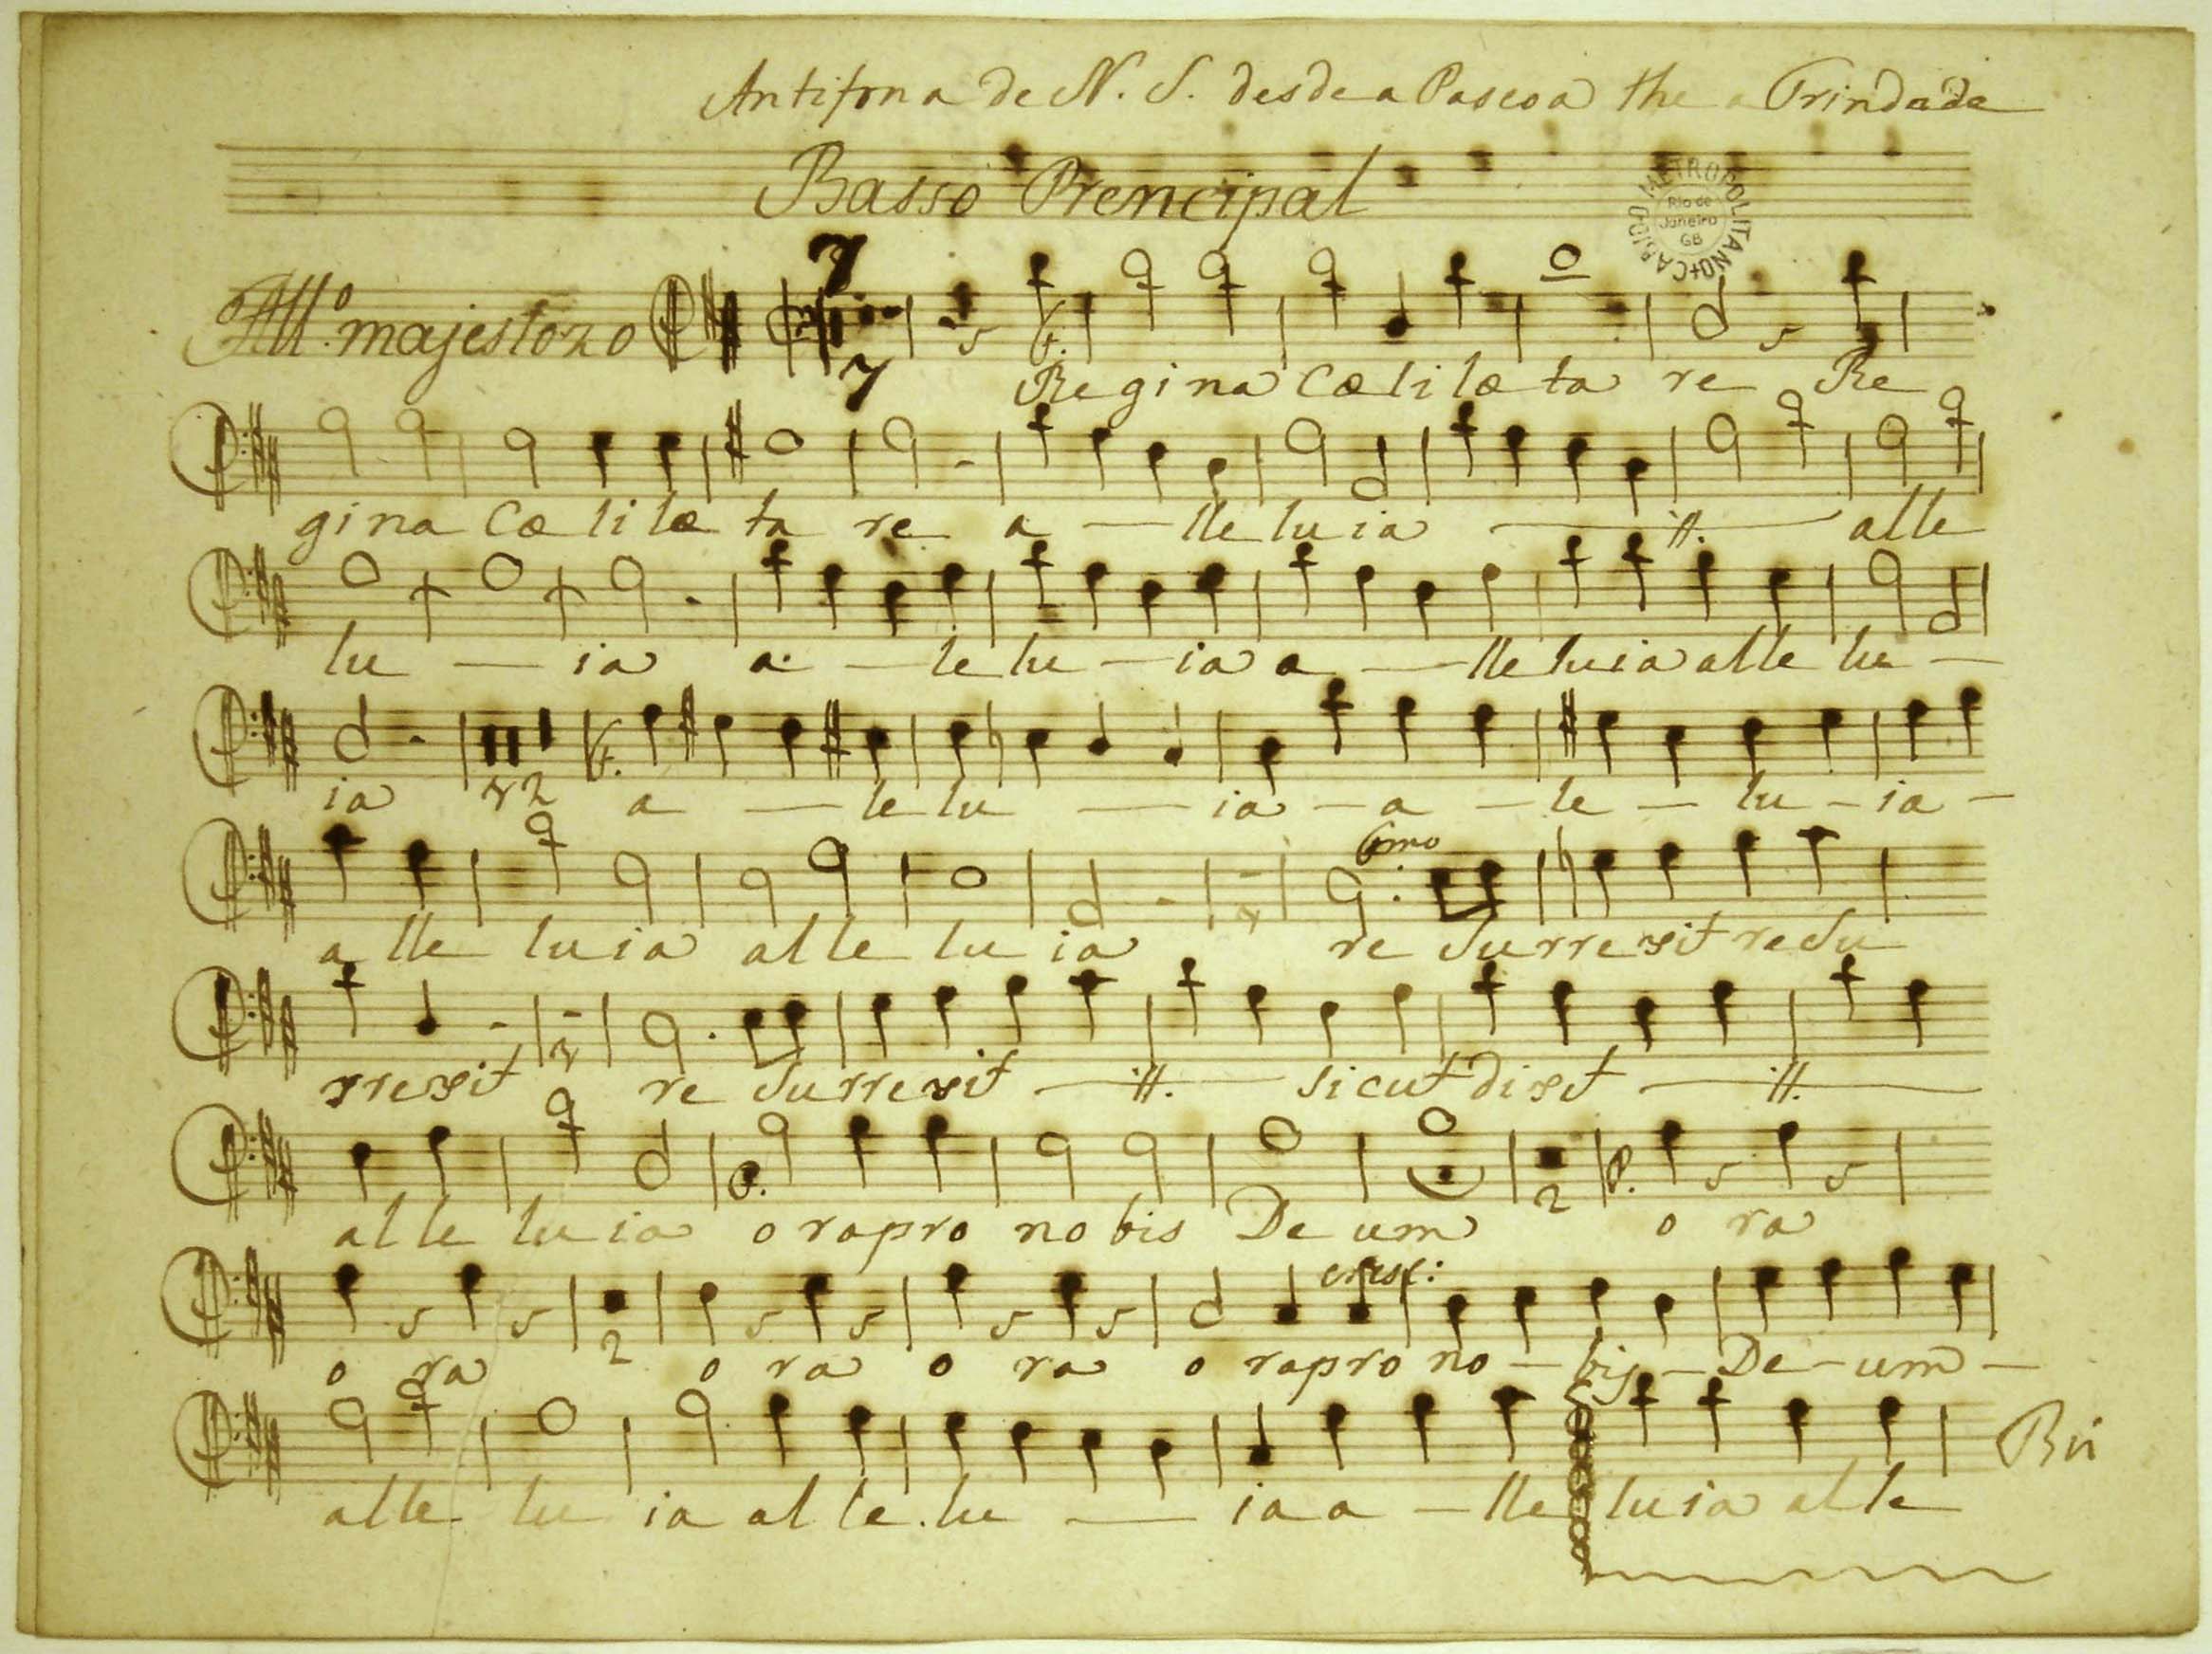 Antifona de N. S. desde a Pascoa the a Trindade
Basso Prencipal
CABIDO METROPOLITANO
Rio de Janeiro GB
7
All.º majestozo
7
f.
Regina Cœli lœ ta re Re
gina Cœ li lœ ta re a — lle lu ia — :||: — alle
lu — ia a — le lu — ia a — lle luia alle lu —
f.
ia 2 a — le lu — ia — a — le — lu — ia —
a lle lu ia al le lu ia re Su rre xit re Su
rre xit re Su rre xit — :||: — Si cut di xit — :||: —
f. 2 P.
al le lu ia o ra pro no bis De um o ra
cresc:
2
o ra o ra o ra o ra pro no — bis — De — um —
alle lu ia al le. lu — ia a — lle lu ia al le